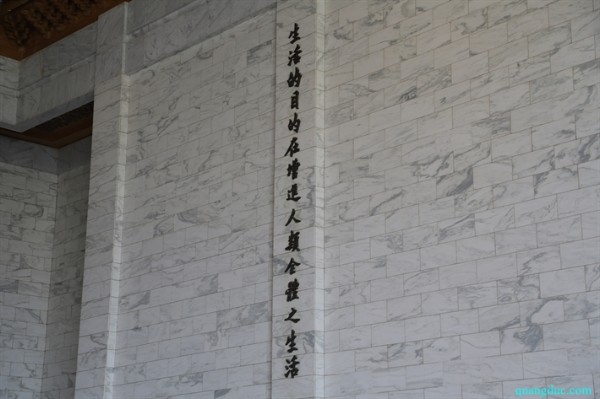 生活的目的在增進人類全體之生活
quangduc.com